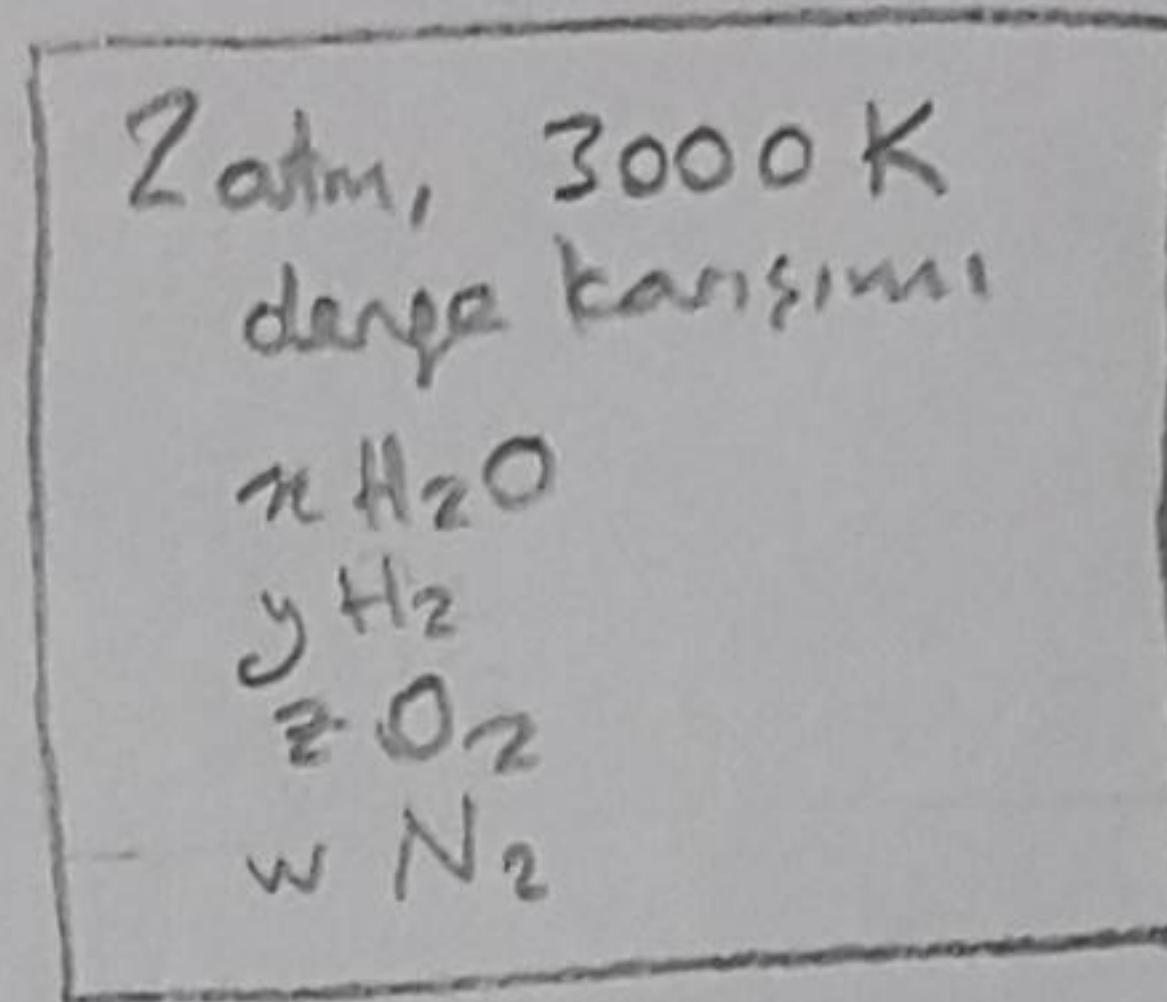 2 atm, 3000 K
denge karışımı
x H₂O
y H₂
z O₂
w N₂